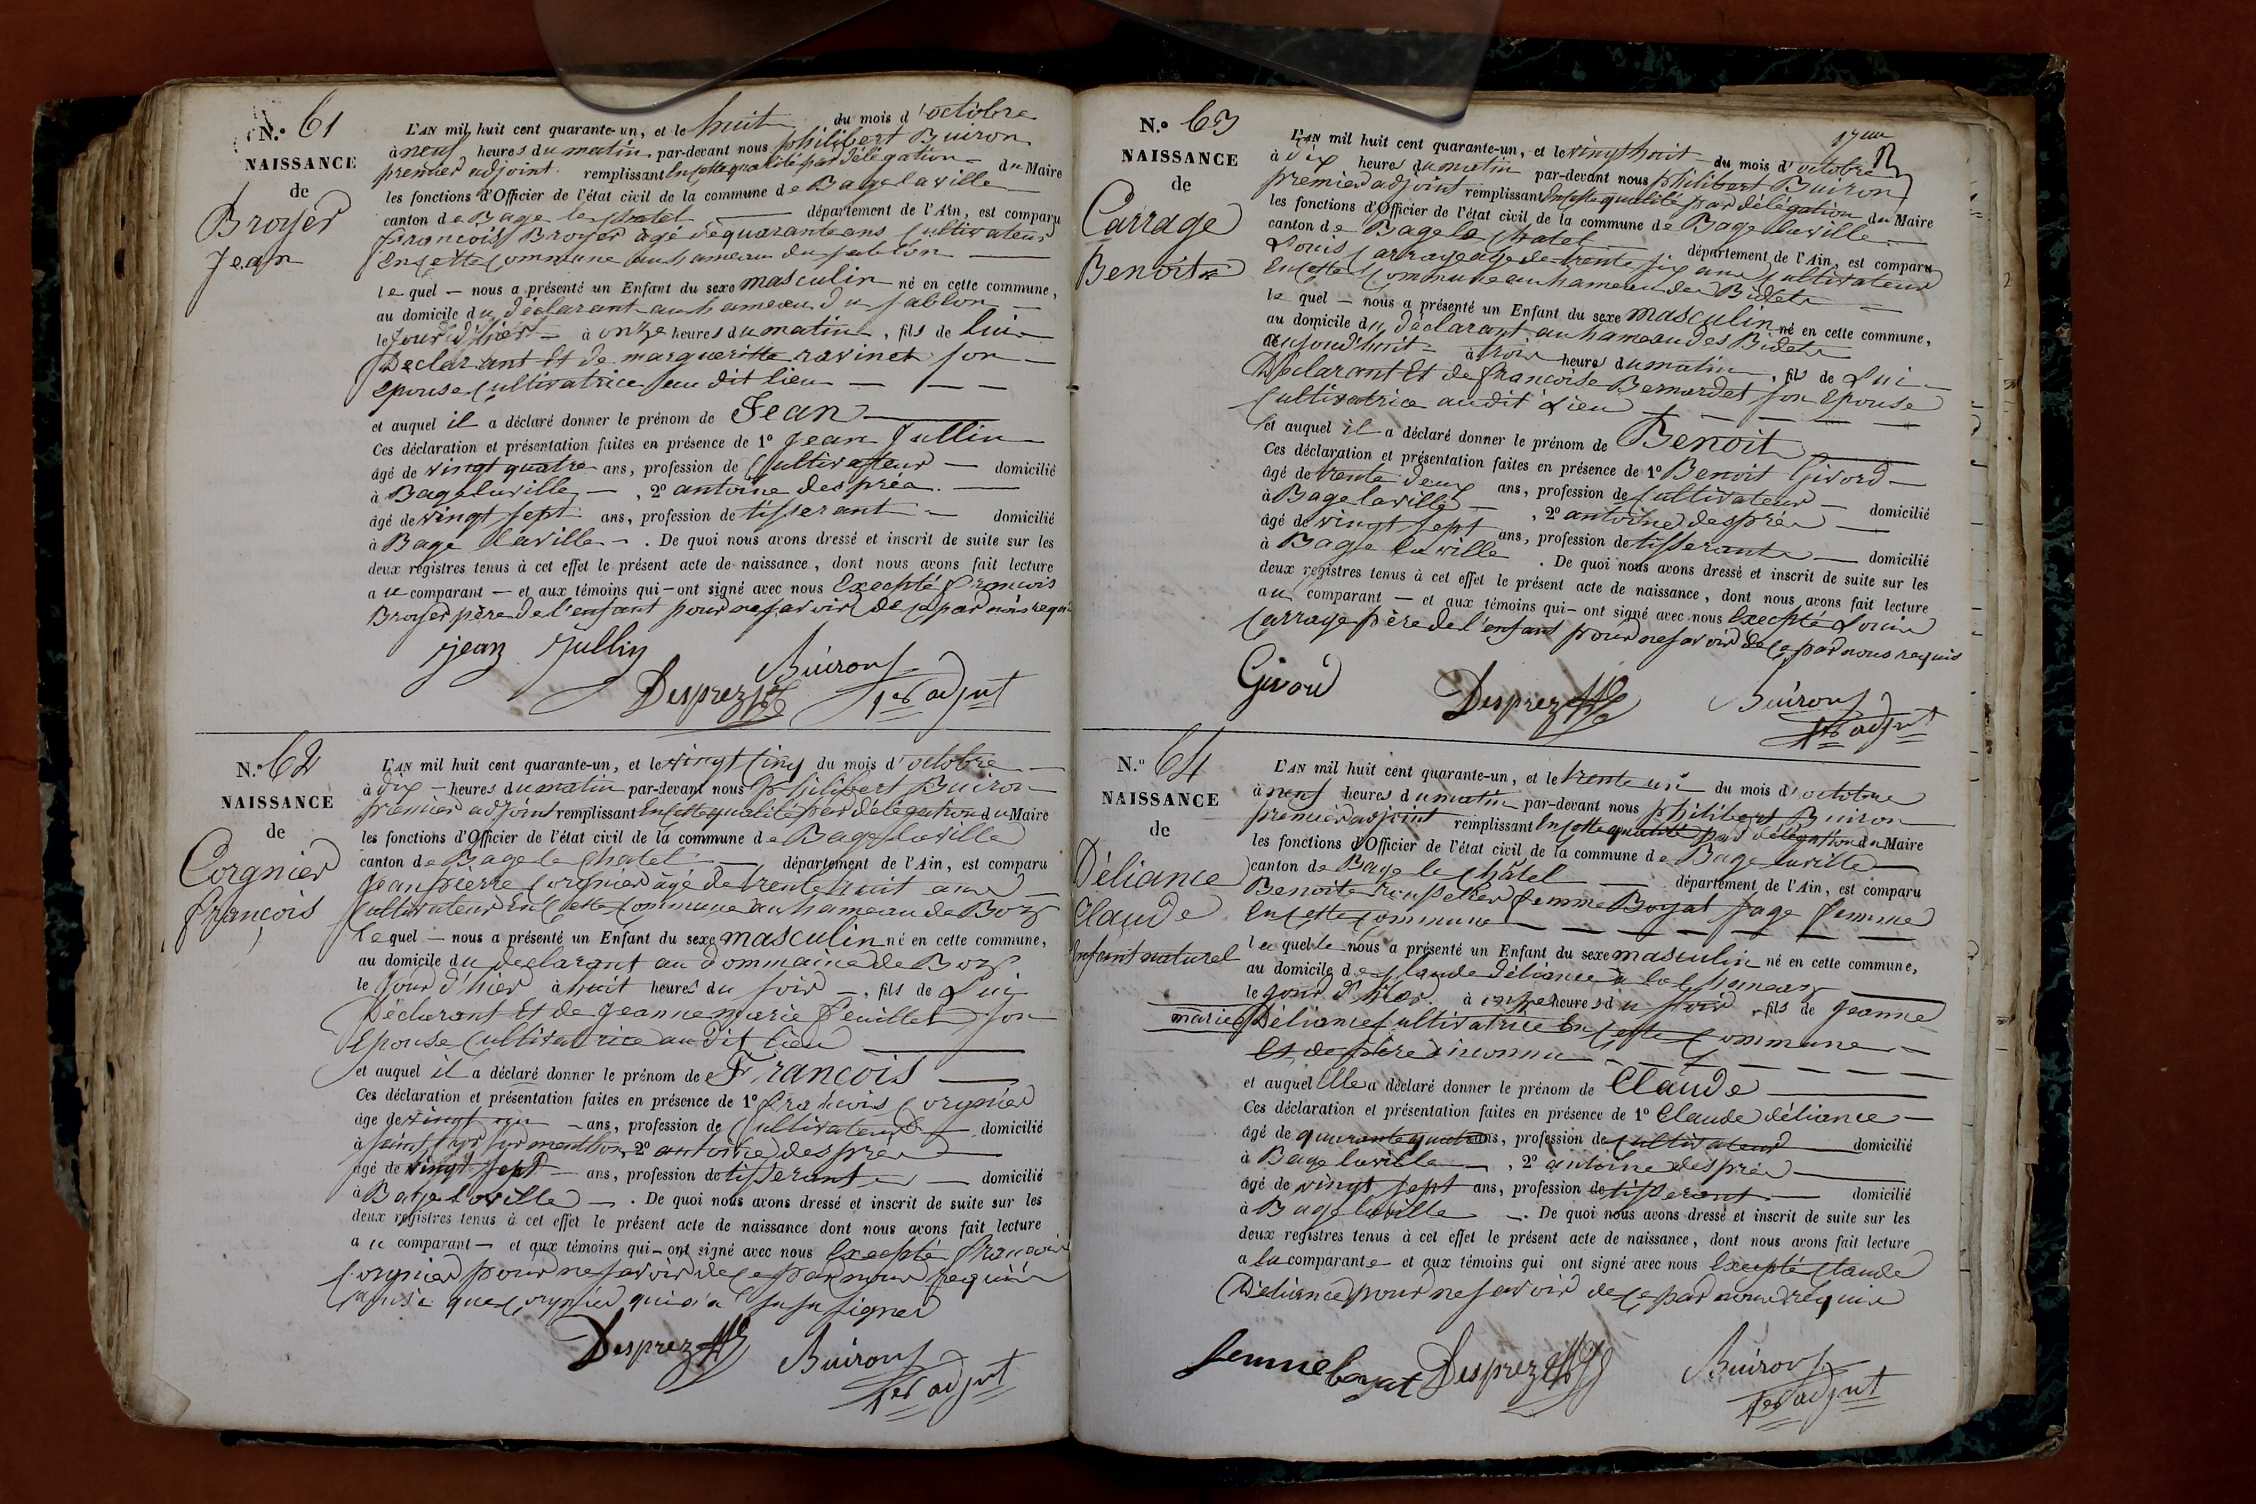 N.º 61
NAISSANCE
de
Broyer
Jean
L'AN mil huit cent quarante-un, et le huit du mois d'octobre
à neuf heures du matin par-devant nous philibert Buiron
premier adjoint remplissant En cette qualité par délégation du Maire
les fonctions d'Officier de l'état civil de la commune de Bage la ville
canton de Bage le chatel département de l'Ain, est comparu
françois Broyer agé de quarante ans Cultivateur
En cette Commune au hameau du sablon
le quel — nous a présenté un Enfant du sexe masculin né en cette commune,
au domicile du déclarant au hameau du sablon
le Jour d'hier à onze heures du matin, fils de lui
Déclarant Et de margueritte ravinet son
Epouse Cultivatrice au dit lieu
et auquel il a déclaré donner le prénom de Jean
Ces déclaration et présentation faites en présence de 1º Jean Jullin
âgé de vingt quatre ans, profession de Cultivateur domicilié
à Bage la ville, 2º antoine després
âgé de vingt sept ans, profession de tisserant domicilié
à Bage la ville. De quoi nous avons dressé et inscrit de suite sur les
deux registres tenus à cet effet le présent acte de naissance, dont nous avons fait lecture
au comparant — et aux témoins qui — ont signé avec nous Excepté françois
Broyer père de l'enfant pour ne savoir de ce par nous requis
jean Jullin
Buiron
Desprez
1er adjnt
N.º 62
NAISSANCE
de
Corgnier
françois
L'AN mil huit cent quarante-un, et le vingt Cinq du mois d'octobre
à dix heures du matin par-devant nous Philibert Buiron
premier adjoint remplissant En cette qualité par délégation du Maire
les fonctions d'Officier de l'état civil de la commune de Bage la ville
canton de Bage le Chatel département de l'Ain, est comparu
Jean pierre Corgnier âgé de trente huit ans
Cultivateur En Cette Commune au hameau de Boz
le quel — nous a présenté un Enfant du sexe masculin né en cette commune,
au domicile du declarant au dommaine de Boz
le Jour d'hier à huit heures du soir, fils de Lui
Déclarant Et de Jeanne marie feuillet son
Epouse Cultivatrice au dit lieu
et auquel il a déclaré donner le prénom de François
Ces déclaration et présentation faites en présence de 1º françois Corgnier
âgé de vingt ans, profession de Cultivateur domicilié
à 2º antoine després
âgé de vingt sept ans, profession de tisserant domicilié
à Bage la ville. De quoi nous avons dressé et inscrit de suite sur les
deux registres tenus à cet effet le présent acte de naissance dont nous avons fait lecture
au comparant — et aux témoins qui — ont signé avec nous Excepté françois
Corgnier pour ne savoir de ce par nous requis
que Corgnier qui signer
Desprez Buiron
1er adjnt
17me
N.º 63
NAISSANCE
de
Carrage
Benoit
L'AN mil huit cent quarante-un, et le vingt huit du mois d'octobre
à dix heures du matin par-devant nous philibert Buiron
premier adjoint remplissant En cette qualité par délégation du Maire
les fonctions d'Officier de l'état civil de la commune de Bage la ville
canton de Bage le Chatel département de l'Ain, est comparu
Louis Carrage agé de trente six ans Cultivateur
En cette Commune au hameau des Bidets
le quel — nous a présenté un Enfant du sexe masculin né en cette commune,
au domicile du declarant au hameau des Bidets
aujourd'huit à trois heures du matin, fils de Lui
Déclarant Et de françoise Bernardet son Epouse
Cultivatrice au dit Lieu
et auquel il a déclaré donner le prénom de Benoit
Ces déclaration et présentation faites en présence de 1º Benoit Givord
âgé de trente deux ans, profession de Cultivateur domicilié
à Bage la ville, 2º antoine després
âgé de vingt sept ans, profession de tisserant domicilié
à Bage la ville. De quoi nous avons dressé et inscrit de suite sur les
deux registres tenus à cet effet le présent acte de naissance, dont nous avons fait lecture
au comparant — et aux témoins qui — ont signé avec nous Excepté Louis
Carrage père de l'enfant pour ne savoir de ce par nous requis
Givord Desprez Buiron
1er adjnt
N.º 64
NAISSANCE
de
Déliance
Claude
Enfant naturel
L'AN mil huit cent quarante-un, et le trente un du mois d'octobre
à neuf heures du matin par-devant nous philibert Buiron
premier adjoint remplissant En cette qualité par délégation du Maire
les fonctions d'Officier de l'état civil de la commune de Bage la ville
canton de Bage le Châtel département de l'Ain, est comparu
Benoite femme Boyat sage femme
En cette Commune
laquelle nous a présenté un Enfant du sexe masculin né en cette commune,
au domicile de Claude déliance
le jour d'hier à onze heures du soir, fils de Jeanne
marie Déliance Cultivatrice En Cette Commune
Et de père inconnu
et auquel Elle a déclaré donner le prénom de Claude
Ces déclaration et présentation faites en présence de 1º Claude déliance
âgé de quarante quatre ans, profession de Cultivateur domicilié
à Bage la ville, 2º antoine després
âgé de vingt sept ans, profession de tisserant domicilié
à Bage la ville. De quoi nous avons dressé et inscrit de suite sur les
deux registres tenus à cet effet le présent acte de naissance, dont nous avons fait lecture
a la comparante et aux témoins qui ont signé avec nous Excepté Claude
Déliance pour ne savoir de ce par nous requis
femme boyat Desprez Buiron
1er adjnt